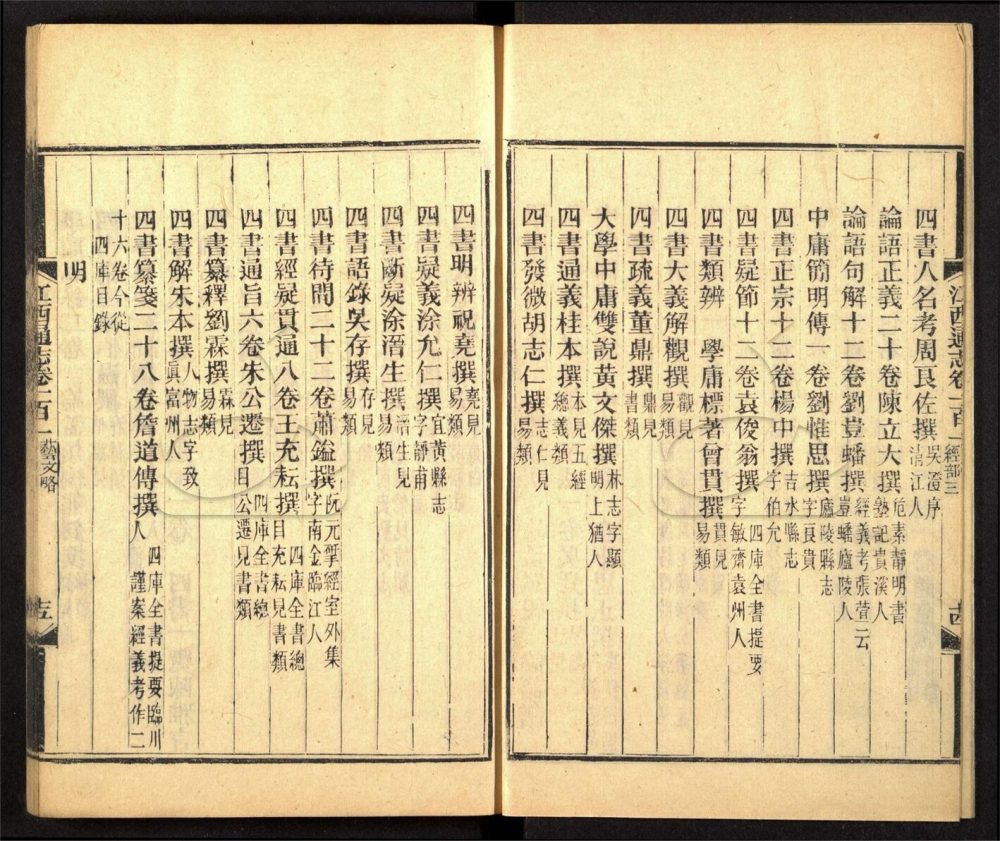 江西通志卷一百一 經部三 十四
四書人名考周良佐撰 吳澄序 清江人
論語正義二十卷陳立大撰 危素靜明書塾記貴溪人
論語句解十二卷劉豈蟠撰 經義考張萱云豈蟠廬陵人
中庸簡明傳一卷劉惟思撰 廬陵縣志字良貴
四書正宗十二卷楊中撰 吉水縣志字伯允
四書疑節十二卷袁俊翁撰 四庫全書提要字敏齋袁州人
四書類辨 學庸標著曾貫撰 貫見易類
四書大義解觀撰 觀見易類
四書疏義董鼎撰 鼎見書類
大學中庸雙說黃文傑撰 林志字顯明上猶人
四書通義桂本撰 本見五經總義類
四書發微胡志仁撰 志仁見易類
四書明辨祝堯撰 堯見易類
四書疑義涂允仁撰 宜黃縣志字靜甫
四書斷疑涂溍生撰 溍生見易類
四書語錄吳存撰 存見易類
四書待問二十二卷蕭鎰撰 阮元揅經室外集字南金臨江人
四書經疑貫通八卷王充耘撰 四庫全書總目充耘見書類
四書通旨六卷朱公遷撰 四庫全書總目公遷見書類
四書纂釋劉霖撰 霖見易類
四書解朱本撰 人物志字致眞富州人
四書纂箋二十八卷詹道傳撰 四庫全書提要臨川人 謹案經義考作二
十六卷今從四庫目錄
明
江西通志卷一百一 藝文略 十五